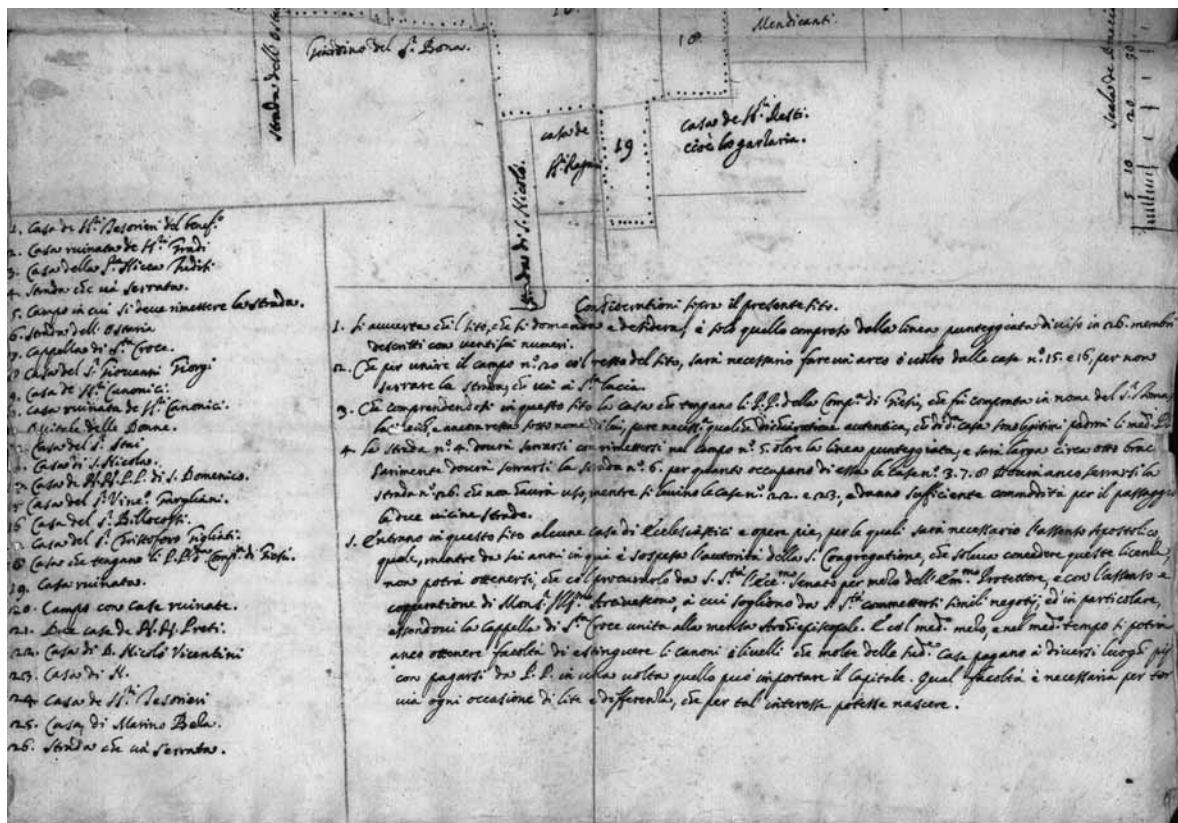 18.
Mendicanti.
Giardino del S.r Bona.
Strada dell'Osta
Scala de Bracci
5 10 20 30
casa de
19
casa de SS.ri Resti.
cioè lo gartaria.
Strada di S. Nicolò.
1. Casa de SS.ri Tesorieri del benef.o
2. Casa ruinata de SS.ri Gradi
3. Casa della S.ra
4. Strada che và serrata.
5. Campo in cui si deve rimettere la strada.
6. Strada dell'Ostaria
7. Cappella di S.ta Croce.
8 Casa del S.r Giovanni Giorgi
9. Casa de SS.ri Canonici.
casa ruinata de SS.ri Canonici.
delle Donne.
Casa del S.r
Casa di S. Nicola.
Casa de M.M. P.P. di S. Domenico.
Casa del S.r Vinc.o
16 Casa del S.r
Casa del S.r Cristoforo
18 Casa che tengano li P.P. d.a Comp.a di Giesù.
19. Casa ruinata.
20. Campo con case ruinate.
21. Due case de Preti.
22. Casa di D. Nicolò Vicentini
23. Casa di N.
24. Casa de SS.ri Tesorieri
25. Casa di Marino Bela.
26. Strada che và serrata.
Considerationi sopra il presente sito.
1. Si auuerta che'l sito, che si domanda e desidera, è solo quello compreso dalla linea punteggiata diuiso in 26. membri
descritti con uentisei numeri.
2. Che per unire il campo n.o 20 col resto del sito, sarà necessario fare un arco ò uolto dalle case n.o 15. e 16, per non
serrare la strada, che và à S.ta Lucia.
3. Che comprendendosi in questo sito la casa che tengano li P.P. della Comp.a di Giesù, che fù comprata in nome del S.r
e ancora resta sotto nome di lui, pare necess.a qualche dichiaratione autentica, che di d.a casa sono legitimi padroni li med.i P.P.
4. La strada n.o 4. dourà serrarsi con rimettersi nel campo n.o 5. oltre la linea punteggiata, e sarà larga circa otto brac
Parimente dourà serrarsi la strada n.o 6. per quanto occupano di essa le case n.o 3. 7. 8 Dourà anco serrarsi la
strada n.o 26. che non haurà uso, mentre si leuino le case n.o 22. e 23, e danno sufficiente commodità per il passaggio
le due uicine strade.
5. Entrano in questo sito alcune case di Ecclesiastici e opere pie, per le quali sarà necessario l'assenso Apostolico,
quale, mentre da sei anni in quà è sospesa l'autorità della S. Congregatione, che soleua concedere queste licenze,
non potrà ottenersi, che col procurarlo da S. S.tà l'Ecc.mo Senato per mezo dell'Em.mo Protettore, e con l'assenso e
cooperatione di Mons.r Ill.mo Arciuescouo, à cui sogliono da S. S.tà commettersi simili negotij, ed in particolare,
essendoui la Cappella di S.ta Croce unita alla mensa Archiepiscopale. E col med.o mezo, e nel med.o tempo si potrà
anco ottenere facoltà di estinguere li canoni ò liuelli che molte delle sud.e Case pagano à diuersi luoghi pij
con pagarsi da P.P. in una uolta quello può importare il Capitale. Qual facoltà è necessaria per tor
uia ogni occasione di lite e differenza, che per tal interesse potesse nascere.